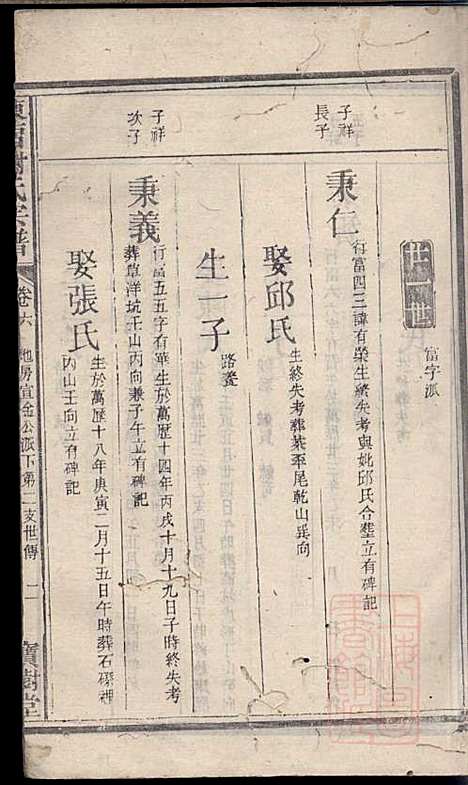 富字派
子祥
長子
秉仁
行富四三諱有榮生縈失考與妣邱氏合塟立有碑記
娶邱氏
生終失考葬茶坯尾乾山巽向
生一子
路養
子祥
次子
秉義
行富五五字有華生於萬歷十四年丙戌十月十九日子時終失考
葬草洋坑壬山丙向兼子午立有碑記
娶張氏
生於萬歷十八年庚寅二月十五日午時葬石礤裡
丙山壬向立有碑記
謝氏宗譜
卷六
地房宣金公派下第二支世傳
寶樹堂